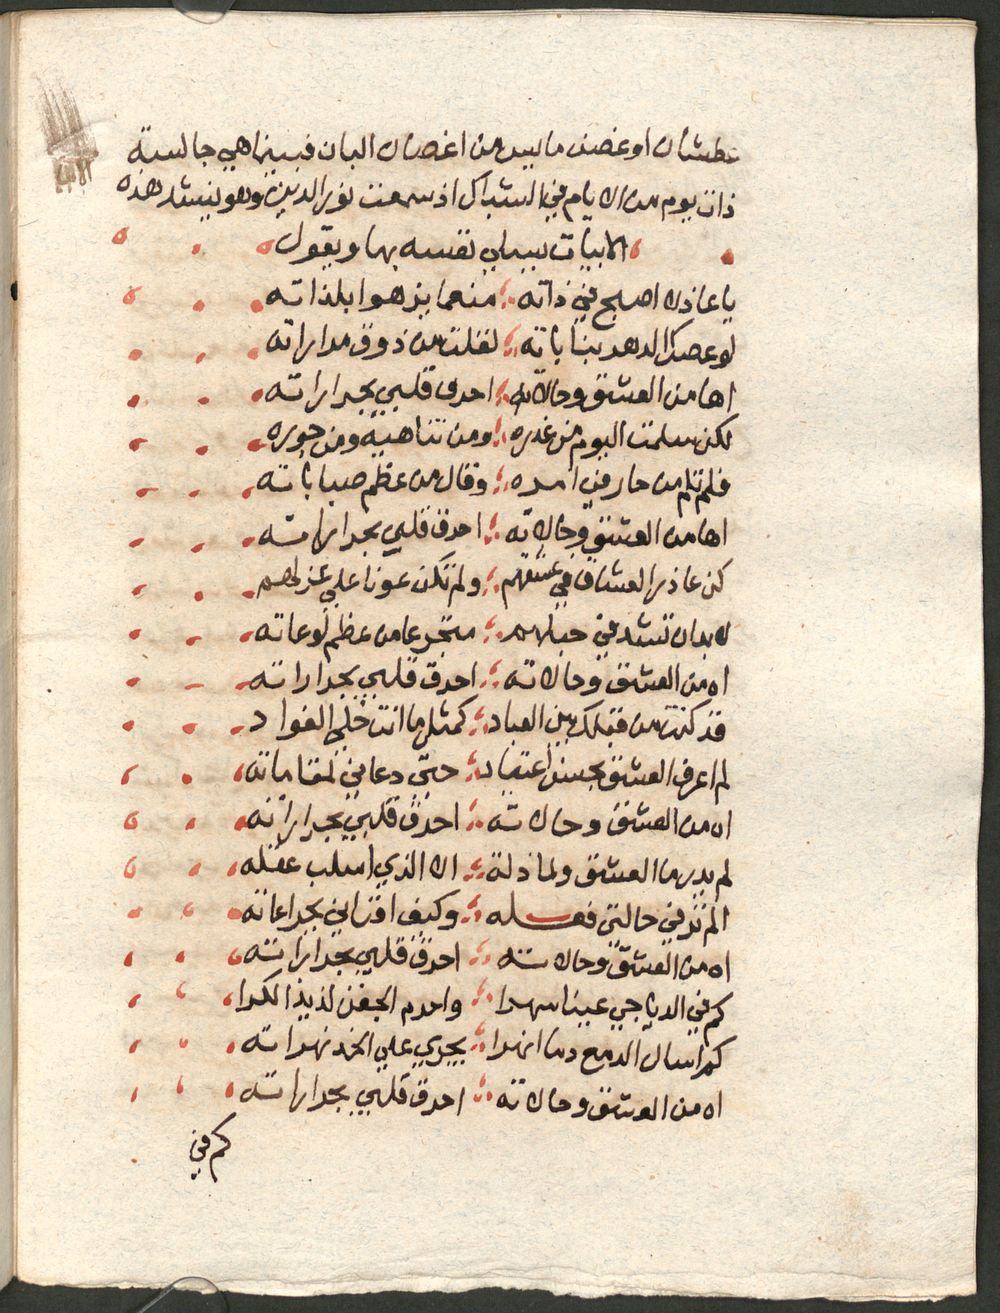 عطشان او غصن مايس من اغصان البان فبينما هي جالسة
ذات يوم من الايام في الشباك اذ سمعت نور الدين وهو ينشد هذه
الابيات يسلي نفسه بها ويقول
يا عاذلا اصبح في ذاته منعما يزهوا بلذاته
لو عضك الدهر بناباته لقلت من ذوق مراراته
اها من العشق وحالاته احرق قلبي بجراراته
لكن سلمت اليوم من غدره ومن تناهيه ومن جوره
فلم تلم من حار في امره وقال من عظم صباباته
اها من العشق وحالاته احرق قلبي بجراراته
كن عاذر العشاق في عشقهم ولم تكن عونا علي عزلهم
لا بد ان تشد في حبلهم متجرعا من عظم لوعاته
اه من العشق وحالاته احرق قلبي بجراراته
قد كنت من قبلك بين العباد كمثل ما انت خلي الفواد
لم اعرف العشق بحسن اعتقاد حتي دعاني لمقاماته
اه من العشق وحالاته احرق قلبي بجراراته
لم يدر ما العشق ولما ذلة الا الذي اسلب عقله
الم تر في حالتي فعله وكيف افناني بجراعاته
اه من العشق وحالاته احرق قلبي بجراراته
كم في الدياجي عينا سهرا واحرم الجفن لذيذ الكرا
كم اسال الدمع دما انهرا يجري علي الخد نهراته
اه من العشق وحالاته احرق قلبي بجراراته
كم في